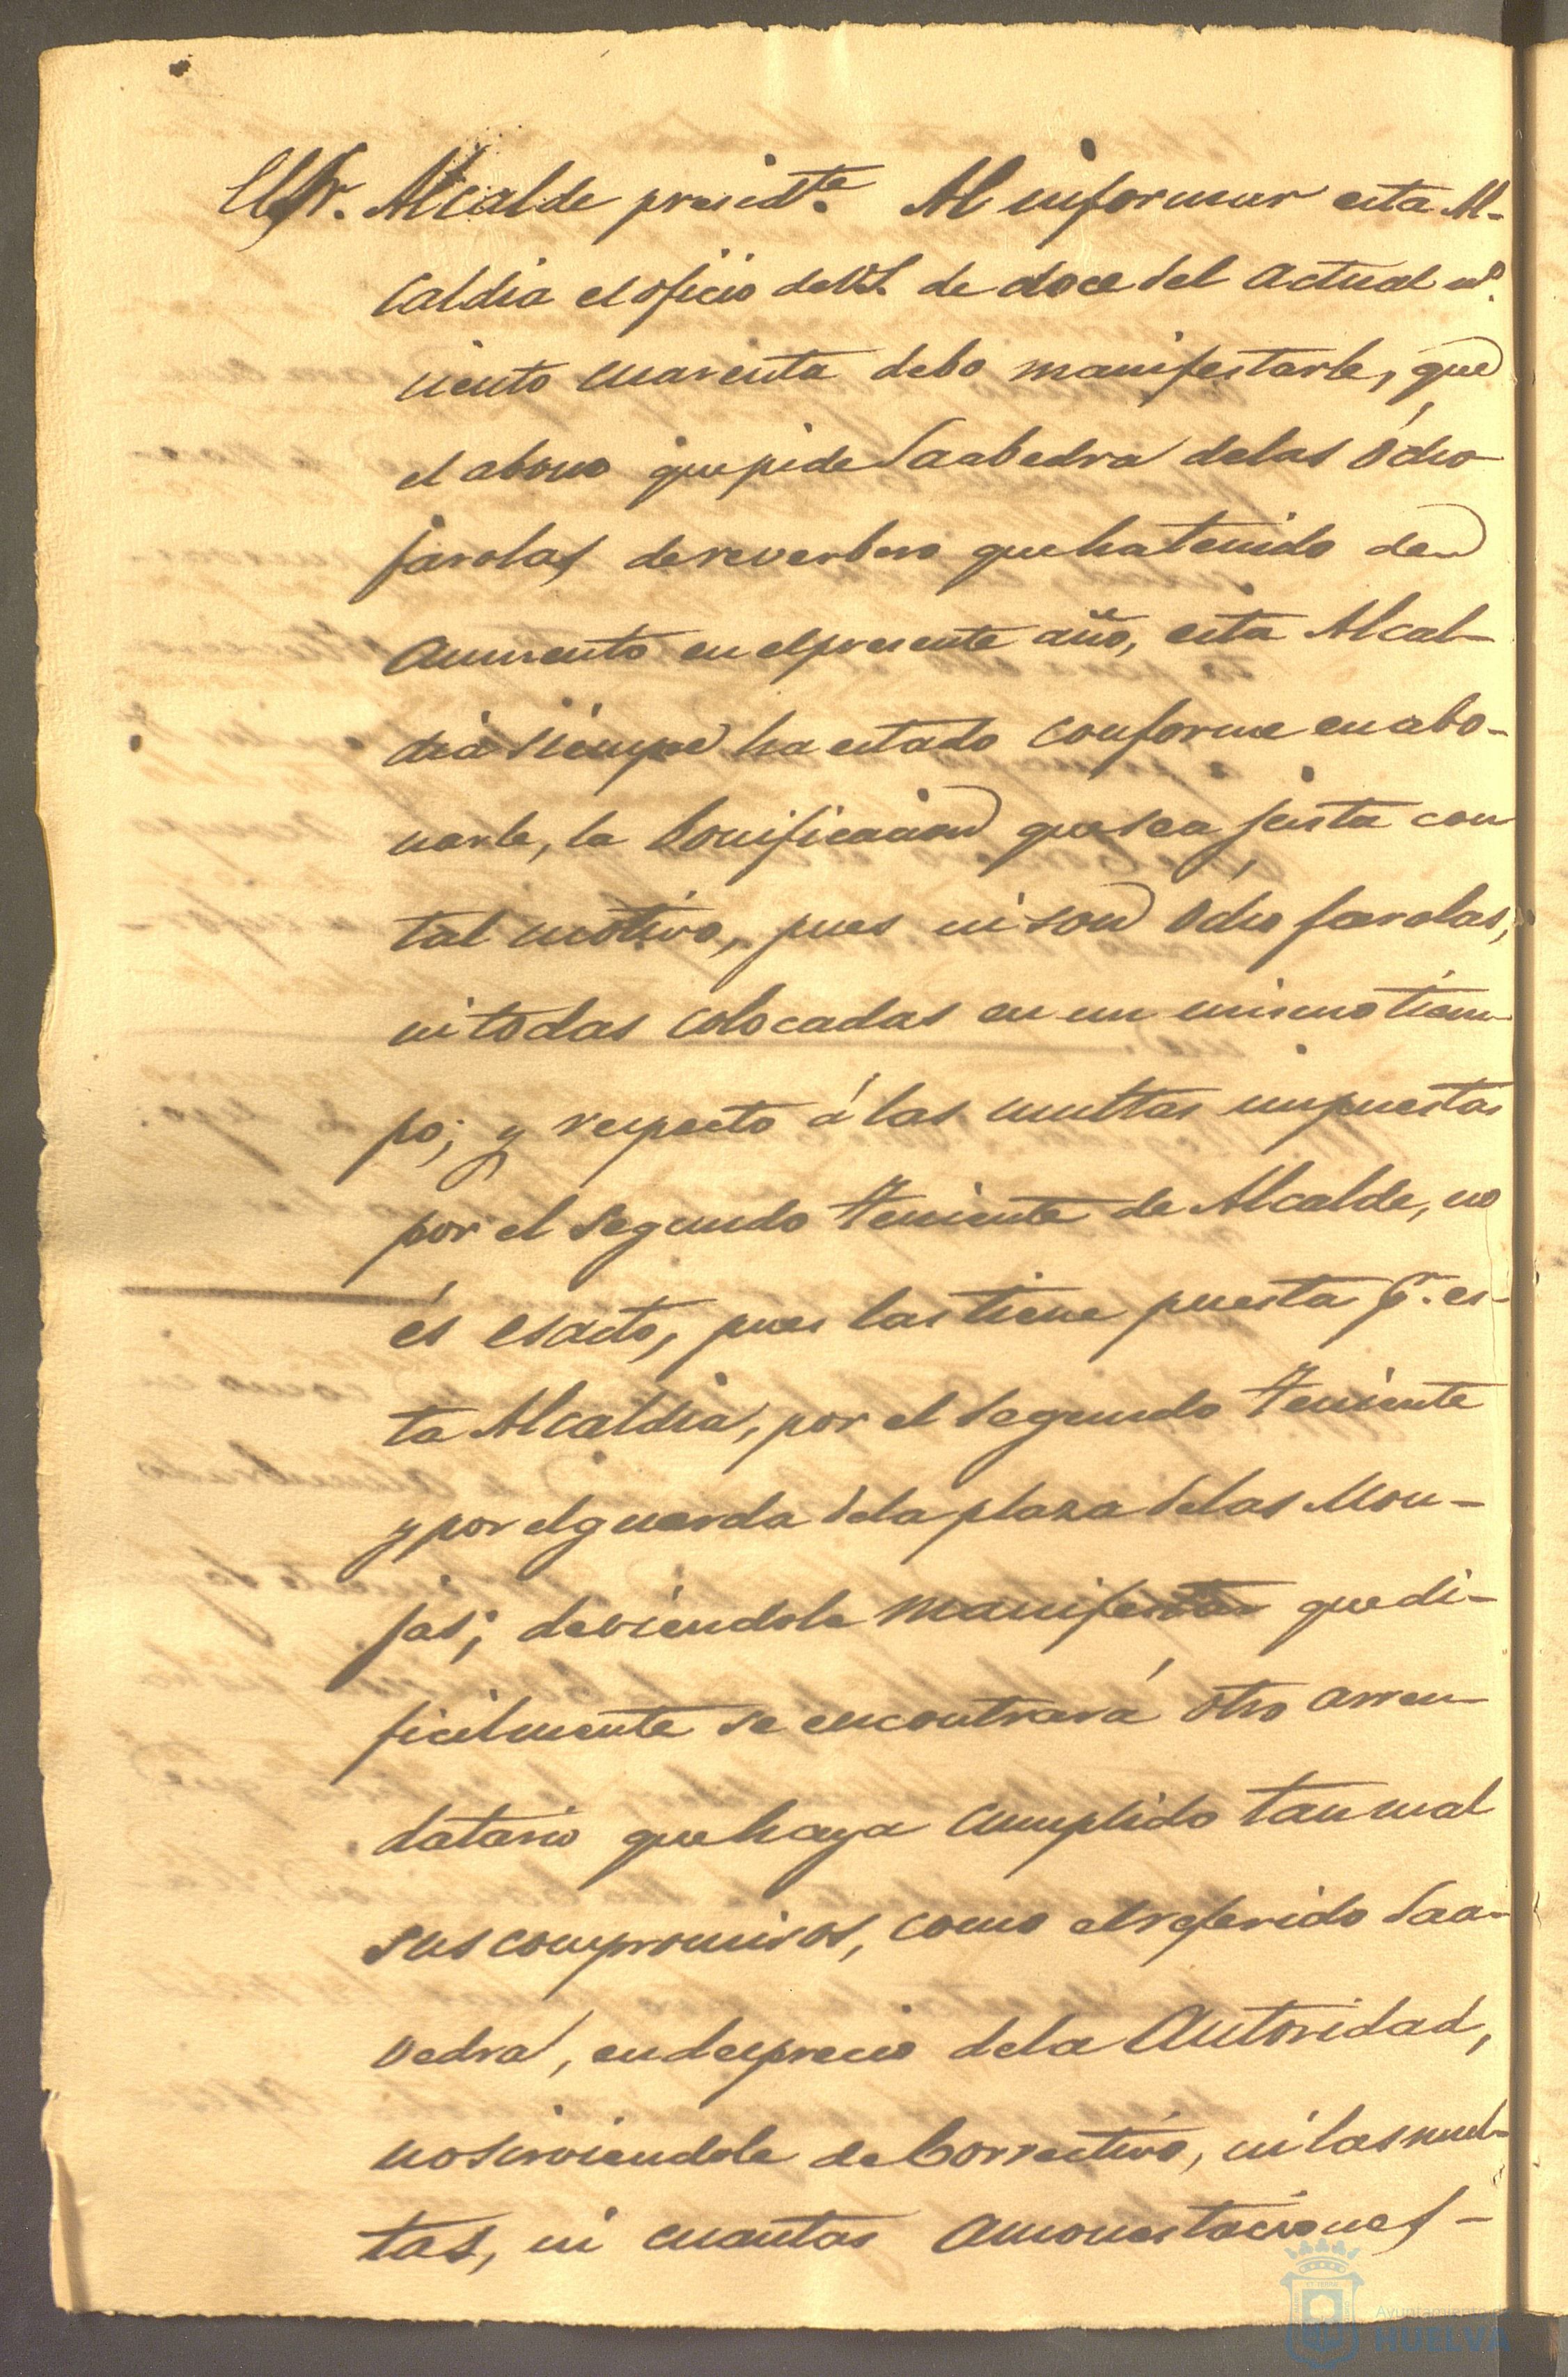 Sr. Alcalde presidte. Al informar esta Al-
caldia el oficio de V.S. de doce del actual nº.
ciento cuarenta debo manifestarle, que
el abono que pide Saabedra de las ócho
farolas de reverbero que ha tenido de
aumento en el presente año, esta Alcal-
dia siempre ha estado conforme en abo-
narle, la bonificacion que sea justa con
tal motivo, pues ni son ócho farolas,
ni todas colocadas en un mismo tiem-
po; y respecto á las multas impuestas
por el segundo teniente de Alcalde, no
és esacto, pues las tiene puesta pr. es-
ta Alcaldia, por el segundo teniente
y por el guarda de la plaza de las Mon-
jas; deviendole manifestar que di-
ficilmente se encontrará otro arren-
datario que haya cumplido tan mal
sus compromisos, como el referido Saa-
vedra, en desprecio de la Autoridad,
no sirviendole de correctivo, ni las mul-
tas, ni cuantas amonestaciones-
Ayuntamiento
HUELVA